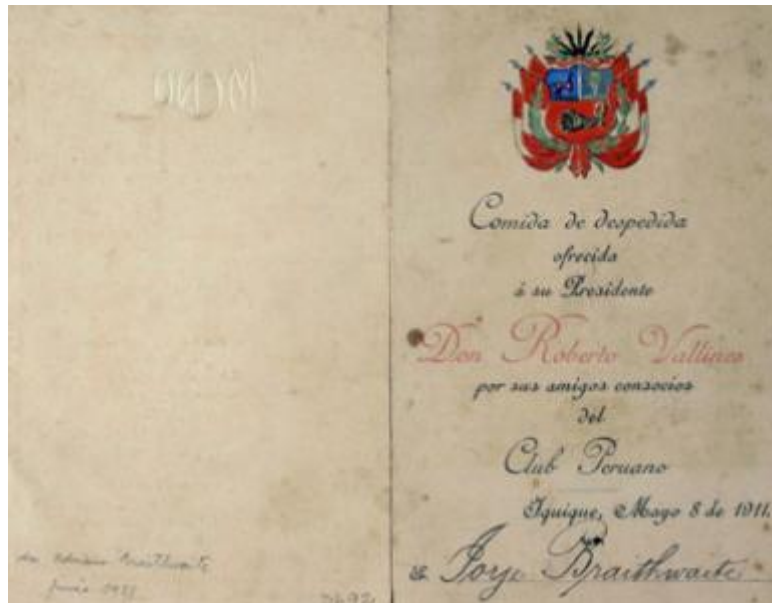 Comida de despedida
ofrecida
á su Presidente
Don Roberto Vallines
por sus amigos consocios
del
Club Peruano
Iquique, Mayo 8 de 1911.
Jorje Braithwaite
Braithwaite